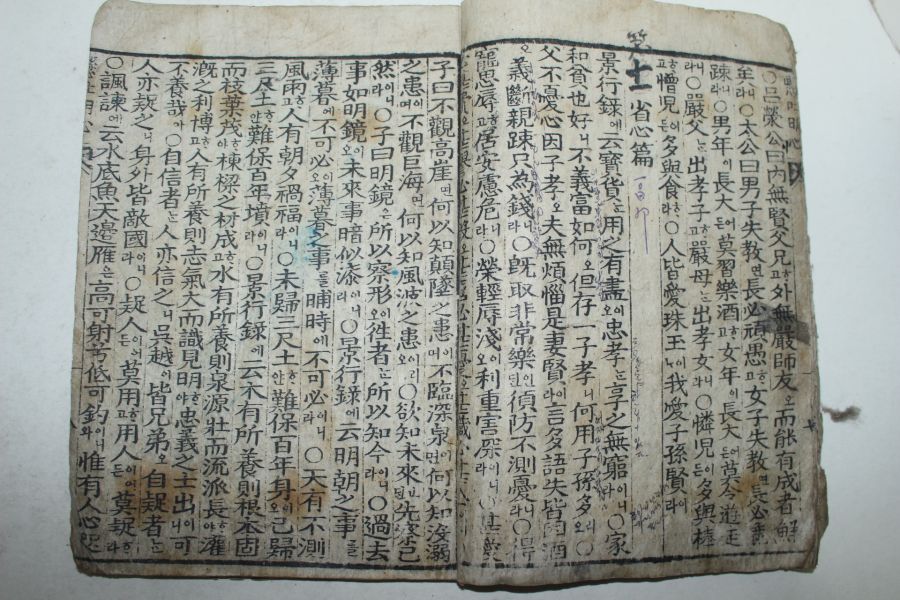 ○呂滎公曰內無賢父兄고外無嚴師友오而能有成者
○太公曰男子失教면長必頑愚고女子失教면長必
踈라○男年이長大어든莫習樂酒고女年이長大어든莫令遊走
라○嚴父는出孝子고嚴母는出孝女라○憐兒어든多與棒
고憎兒어든多與食라○人皆愛珠玉이나我愛子孫賢라
省心篇
景行錄에云寶貨는用之有盡이오忠孝는享之無窮이니라○家
和貧也好니와不義富如何오但存一子孝니何用子孫多리오○
父不憂心因子孝오夫無煩惱是妻賢라言多語失皆因酒
오義斷親踈只為錢라○既取非常樂인댄須防不測憂라○得
寵思辱고居安慮危라○榮輕辱淺이오利重害深라
子曰不觀高崖면何以知顚墜之患이며不臨深泉면何以知沒溺
之患이며不觀巨海면何以知風波之患이리오○欲知未來댄先察已
然이니라○子曰明鏡은所以察形이오徃者는所以知今이니라○過去
事는如明鏡이오未來事는暗似漆이라○景行錄에云明朝之事를
薄暮에不可必이오薄暮之事를晡時에不可必이라○天有不測
風雨고人有朝夕禍福이라○未歸三尺土얀難保百年身이오已歸
三尺土얀難保百年墳이라○景行錄에云木有所養則根本固
而枝葉茂야棟樑之材成고水有所養則泉源壯而流派長야灌
漑之利博고人有所養則志氣大而識見明야忠義之士出이니可
不養哉아○自信者는人亦信之니吳越이皆兄弟오自疑者는
人亦疑之니身外皆敵國이라○疑人이어든莫用고用人이어든莫疑라
○諷諫에云水底魚天邊雁은高可射兮低可釣와惟有人心咫